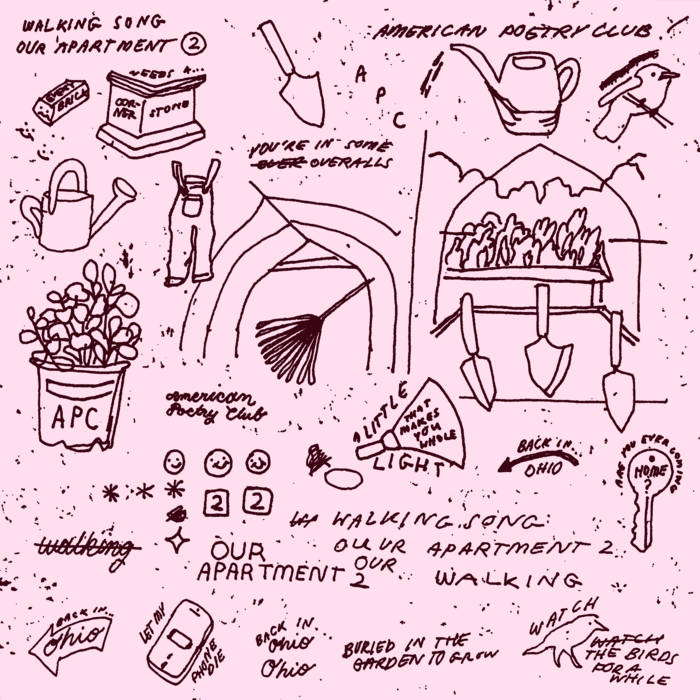 WALKING SONG
OUR APARTMENT 2
AMERICAN POETRY CLUB
EVERY
BRICK
NEEDS A...
COR-
NER
STONE
A
P
C
YOU'RE IN SOME
OVER OVERALLS
APC
American
Poetry Club
A LITTLE
THAT
MAKES
YOU
WHOLE
LIGHT
BACK IN...
OHIO
ARE YOU EVER COMING
HOME
?
2 2
WALKING SONG
OUUR APARTMENT 2
walking
OUR
APARTMENT 2
OUR
WALKING
BACK IN...
Ohio
LET MY
PHONE
DIE
BACK IN
Ohio
Ohio
BURIED IN THE
GARDEN TO GROW
WATCH
WATCH
THE BIRDS
FOR A
WHILE